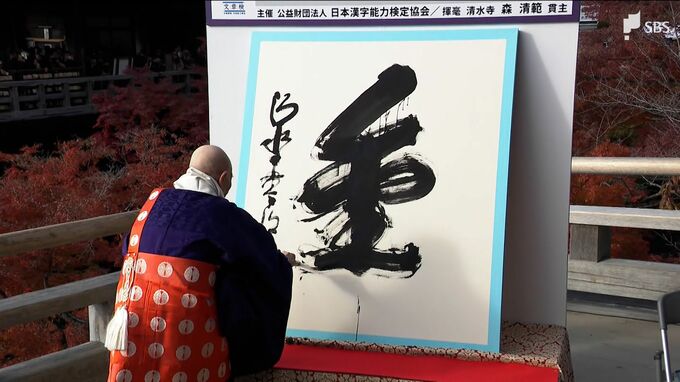 文章検
主催 公益財団法人 日本漢字能力検定協会／揮毫 清水寺 森 清範 貫主
金
SBS